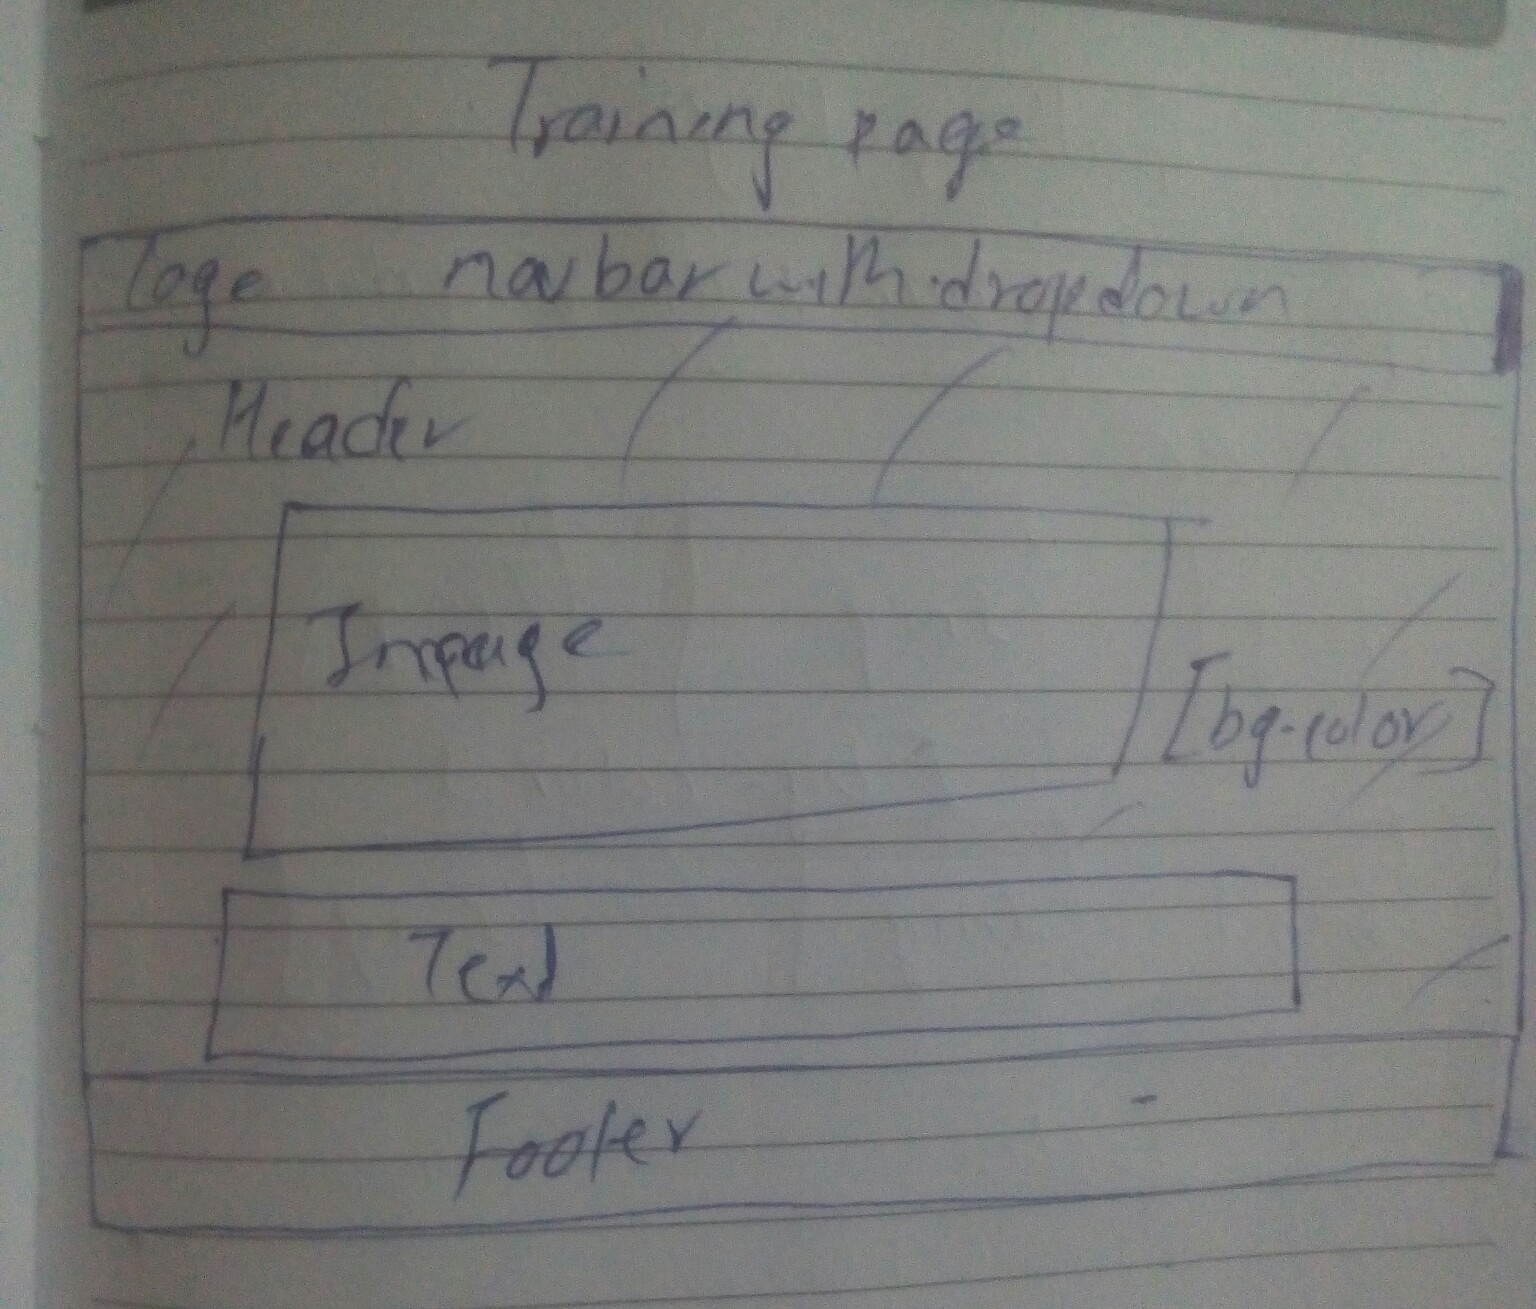 Training page
loge navbar with dropdown
Header
Impage
[bg-color]
Text
Footer